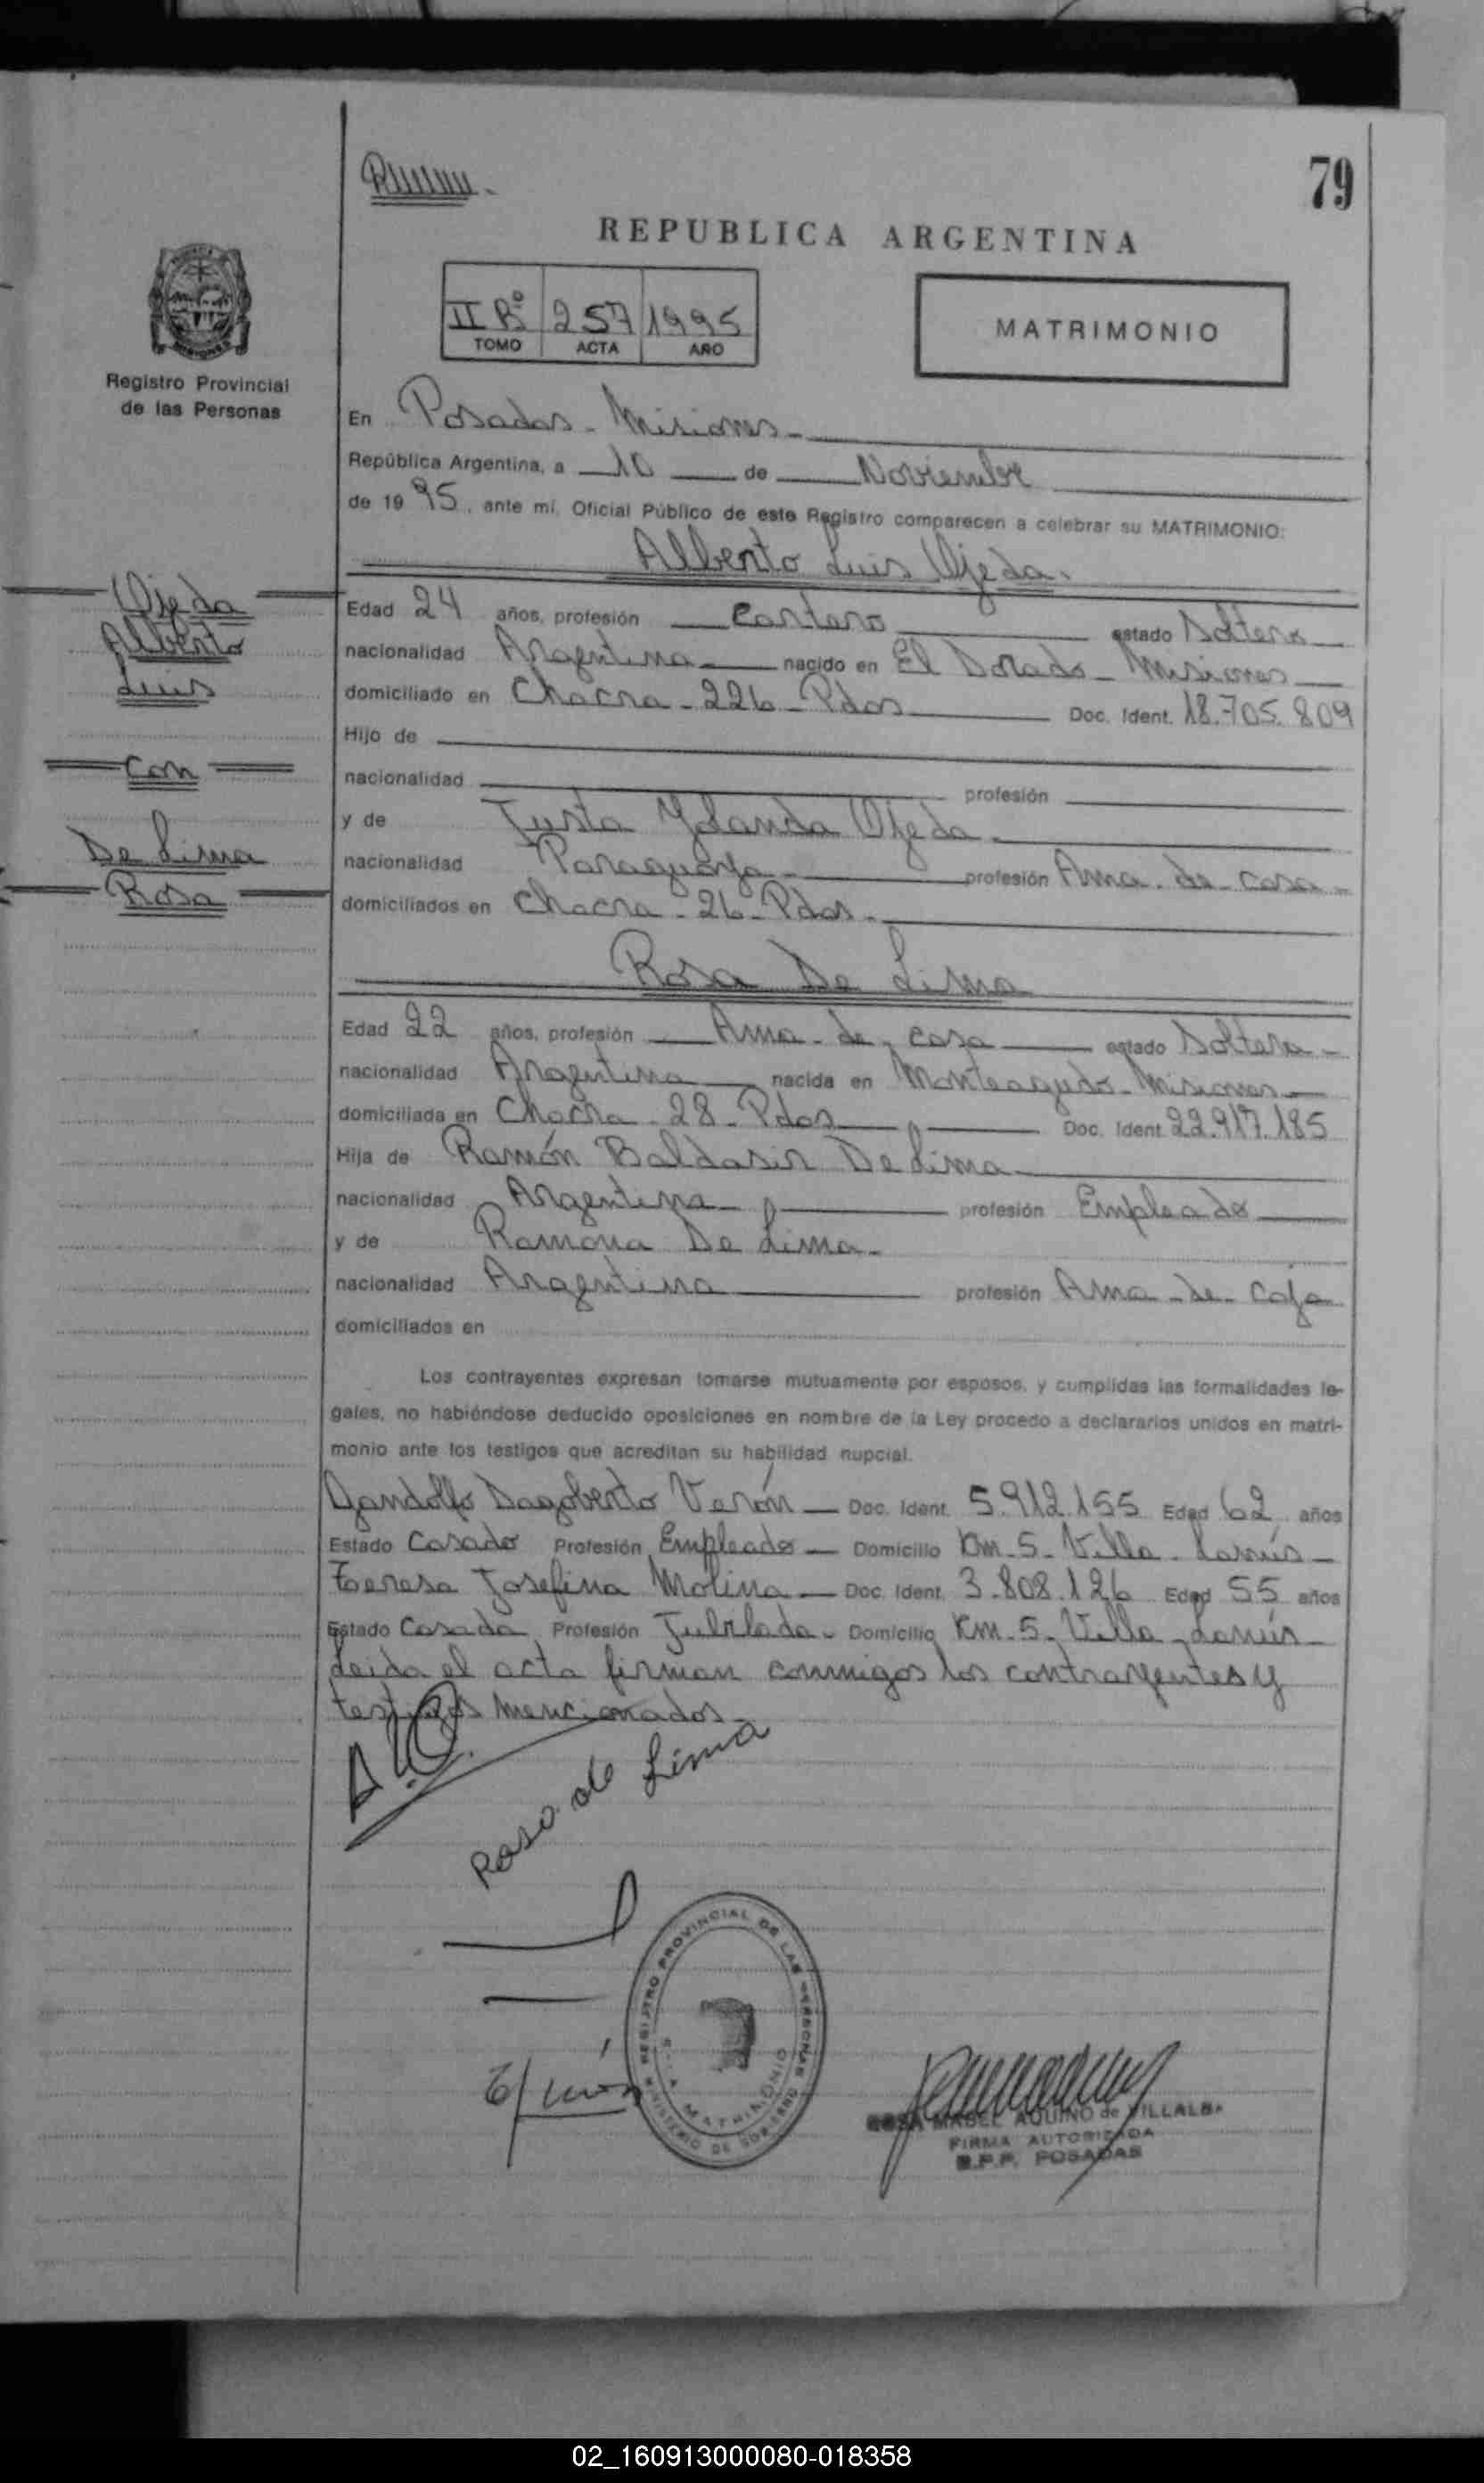 79
REPUBLICA ARGENTINA
II Bº 257 1995
TOMO ACTA AÑO
MATRIMONIO
Registro Provincial
de las Personas
En Posadas - Misiones -
República Argentina, a 10 de Noviembre
de 1995, ante mí, Oficial Público de este Registro comparecen a celebrar su MATRIMONIO:
Alberto Luis Ojeda.
Ojeda
Alberto
Luis
Con
De Lima
Rosa
Edad 24 años, profesión estado Soltero
nacionalidad Argentina nacido en El Dorado - Misiones
domiciliado en Chacra - 226 - Pdas Doc. Ident. 18.705.809
Hijo de
nacionalidad profesión
y de Justa Yolanda Ojeda
nacionalidad Paraguaya profesión Ama - de - casa -
domiciliados en Chacra - 26 - Pdas -
Rosa De Lima
Edad 22 años, profesión Ama - de - casa estado Soltera -
nacionalidad Argentina nacida en Monteagudo - Misiones
domiciliada en Chacra - 28 - Pdas Doc. Ident. 22.917.185
Hija de Ramón Baldasir De Lima
nacionalidad Argentina profesión Empleado
y de Ramona De Lima -
nacionalidad Argentina profesión Ama - de - casa
domiciliados en
Los contrayentes expresan tomarse mutuamente por esposos, y cumplidas las formalidades le-
gales, no habiéndose deducido oposiciones en nombre de la Ley procedo a declararlos unidos en matri-
monio ante los testigos que acreditan su habilidad nupcial.
Gandolfo Dagoberto Verón Doc. Ident. 5.912.155 Edad 62 años
Estado Casado Profesión Empleado Domicilio Km - 5 - Villa - Lanús -
Teresa Josefina Molina Doc. Ident. 3.808.126 Edad 55 años
Estado Casada Profesión Jubilada - Domicilio Km - 5 - Villa - Lanús -
Leida el acta firman conmigos los contrayentes y
testigos mencionados -
Rosa de Lima
REGISTRO PROVINCIAL DE LAS PERSONAS
MINISTERIO DE GOBIERNO
MATRIMONIO
ROSA MABEL AQUINO de VILLALBA
FIRMA AUTORIZADA
R.P.P. POSADAS
02_160913000080-018358